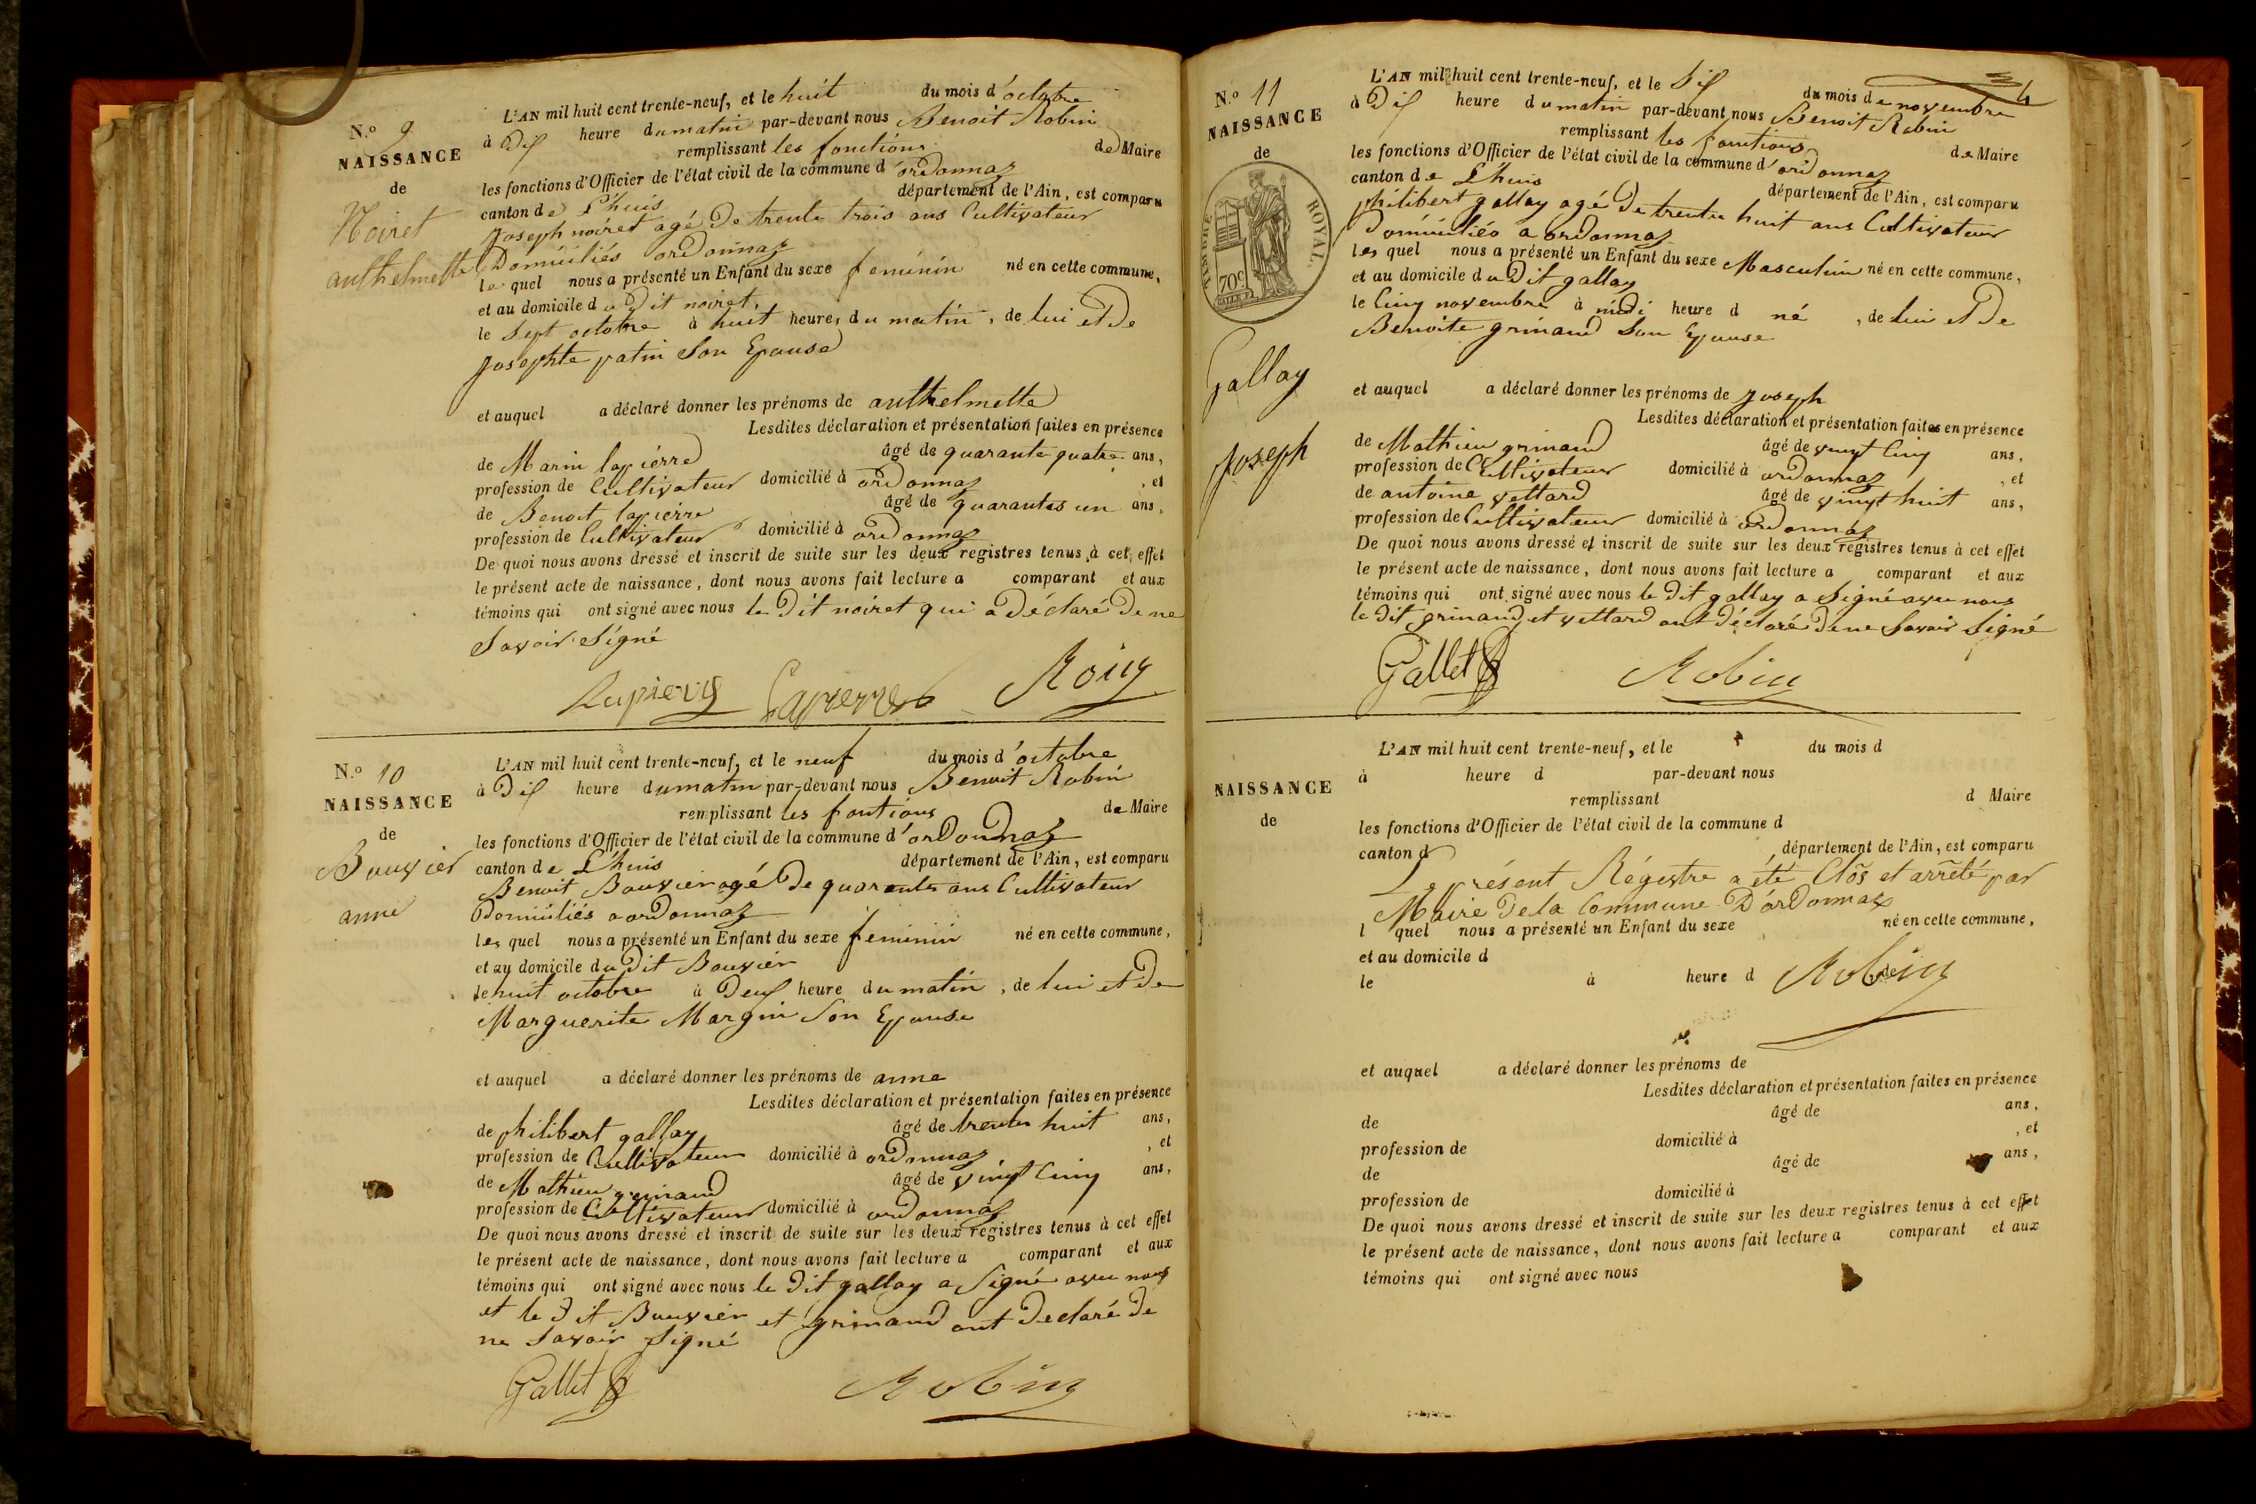 N.º 9
NAISSANCE
de
Noiret
anthelmette
L'AN mil huit cent trente-neuf, et le huit du mois d'octobre
à Dix heure du matin par-devant nous Benoit Robin
remplissant les fonctions de Maire
les fonctions d'Officier de l'état civil de la commune d'ordonnaz
canton de L'huis département de l'Ain, est comparu
Joseph noiret agé De trente trois ans Cultivateur
Domiciliés ordonnaz
le quel nous a présenté un Enfant du sexe feminin né en cette commune,
et au domicile du Dit noiret,
le Sept octobre à huit heures du matin, de lui et De
Josephte patin Son Epouse
et auquel a déclaré donner les prénoms de anthelmette
Lesdites déclaration et présentation faites en présence
de Marin lapierre âgé de quarante quatre ans,
profession de Cultivateur domicilié à ordonnaz, et
de Benoit lapierre âgé de quarantes un ans,
profession de Cultivateur domicilié à ordonnaz
De quoi nous avons dressé et inscrit de suite sur les deux registres tenus à cet effet
le présent acte de naissance, dont nous avons fait lecture a comparant et aux
témoins qui ont signé avec nous le Dit noiret qui a Déclaré De ne
Savoir Signé
Lapierre
N.º 10
NAISSANCE
de
Bouvier
anne
L'AN mil huit cent trente-neuf, et le neuf du mois d'octobre
à Dix heure du matin par-devant nous Benoit Robin
remplissant les fontions de Maire
les fonctions d'Officier de l'état civil de la commune d'ordonnaz
canton de L'huis département de l'Ain, est comparu
Benoit Bouvier agé De quarante ans Cultivateur
Domiciliés a ordonnaz
les quel nous a présenté un Enfant du sexe feminin né en cette commune,
et au domicile du Dit Bouvier
le huit octobre à Deux heure du matin, de lui et De
Marguerite Margin Son Epouse
et auquel a déclaré donner les prénoms de anne
Lesdites déclaration et présentation faites en présence
de philibert gallay âgé de trente huit ans,
profession de Cultivateur domicilié à ordonnaz, et
de Mathieu grinand âgé de vingt Cinq ans,
profession de Cultivateur domicilié à ordonnaz
De quoi nous avons dressé et inscrit de suite sur les deux registres tenus à cet effet
le présent acte de naissance, dont nous avons fait lecture a comparant et aux
témoins qui ont signé avec nous le Dit gallay a Signé avec nous
et le Dit Bouvier et grinand ont Declaré De
ne Savoir Signé
Gallet Robin
4
N.º 11
NAISSANCE
de
TIMBRE ROYAL.
70c
Gallay
Joseph
L'AN mil huit cent trente-neuf, et le Six du mois de novembre
à Dix heure du matin par-devant nous Benoit Robin
remplissant les fonctions de Maire
les fonctions d'Officier de l'état civil de la commune d'ordonnaz
canton de L'huis département de l'Ain, est comparu
philibert gallay agé De trente huit ans Cultivateur
Domiciliés a ordonnaz
les quel nous a présenté un Enfant du sexe Masculin né en cette commune,
et au domicile du Dit gallay
le Cinq novembre à midi heure d né, de lui et De
Benoite grinand Son Epouse
et auquel a déclaré donner les prénoms de Joseph
Lesdites déclaration et présentation faites en présence
de Mathieu grinand âgé de vingt Cinq ans,
profession de Cultivateur domicilié à ordonnaz, et
de antoine vettard âgé de vingt huit ans,
profession de Cultivateur domicilié à ordonnaz
De quoi nous avons dressé et inscrit de suite sur les deux registres tenus à cet effet
le présent acte de naissance, dont nous avons fait lecture a comparant et aux
témoins qui ont signé avec nous le Dit gallay a Signé avec nous
le Dit grinand et vettard ont Déclaré De ne Savoir Signé
Gallet Robin
NAISSANCE
de
L'AN mil huit cent trente-neuf, et le du mois d
à heure d par-devant nous
remplissant d Maire
les fonctions d'Officier de l'état civil de la commune d
canton d département de l'Ain, est comparu
Le présent Régistre a été Clôs et arrêté par
Maire De la Commune D'ordonnaz
l quel nous a présenté un Enfant du sexe né en cette commune,
et au domicile d
le à heure d , de
Robin
et auquel a déclaré donner les prénoms de
Lesdites déclaration et présentation faites en présence
de âgé de ans,
profession de domicilié à , et
de âgé de ans,
profession de domicilié à
De quoi nous avons dressé et inscrit de suite sur les deux registres tenus à cet effet
le présent acte de naissance, dont nous avons fait lecture a comparant et aux
témoins qui ont signé avec nous